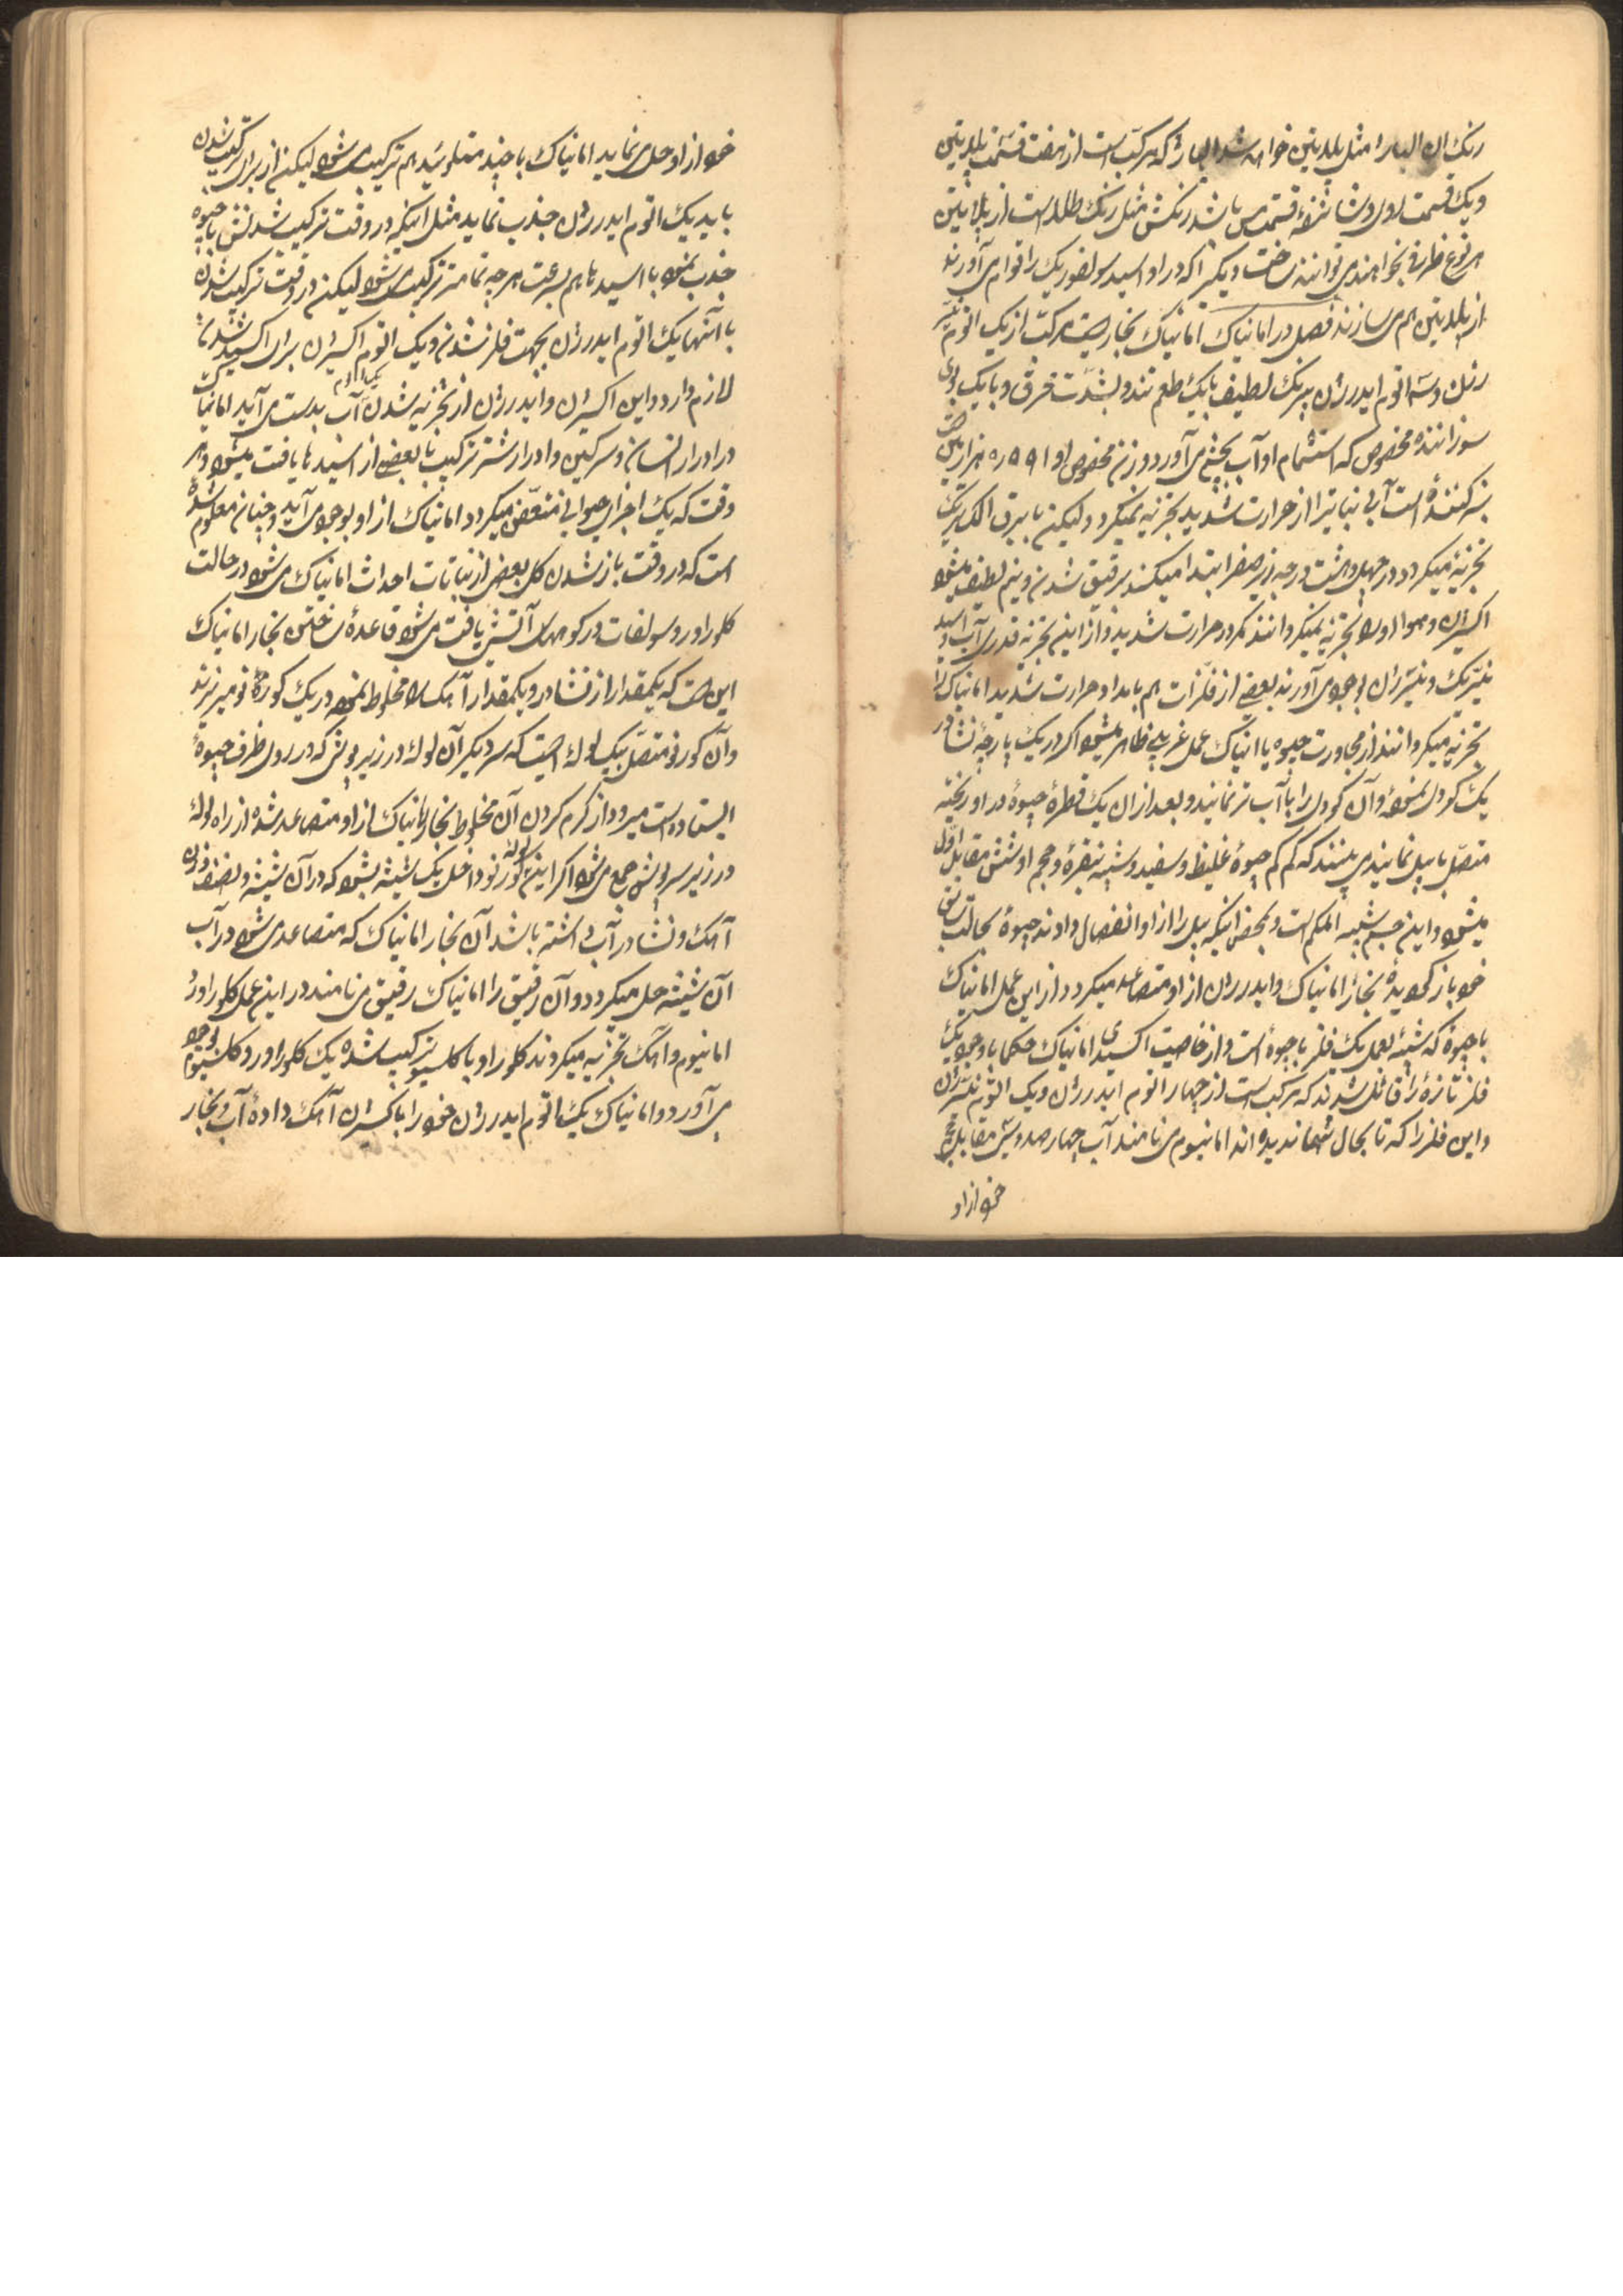 رنک ان البار مثل پلاتین خواهد شد البار که مرکب است از هفت قسمت پلاتین
ویک قسمت روی و شانزده قسمت مس باشد رنکش مثل رنک طلا است از پلاتین
هر نوع ظرفی بخواهند می توانند ساخت و دیک را که در او اسید سولفوریک را قوام می آورند
از پلاتین هم می سازند فصل در امانیاک امانیاک بخاریست مرکب از یک اتوم نیتر
ژن و سه اتوم ایدرژن بیرنک لطیف با یک طعم تند و بشدت خرق و با یک بوی
سوزاننده مخصوص که استشمام او آب بچشم می آورد وزن مخصوص او ۵۹۱ر۰ هزار
سبز کننده است آبی نباتی را از حرارت شدید تجزیه نمیکردد لیکن با برق الکتریک
تجزیه میکردد در چهل و هشت درجه زیر صفر ابتدا میکند برقیق شدن و نیم لطیف میشود
اکسیژن و هوا او را تجزیه نمیکردانند مکر در حرارت شدید و از این تجزیه قدری آب و اسید
نیتریک و نیترژن بوجود می آورند بعضی از فلزات هم بامداد حرارت شدید امانیاک را
تجزیه میکردانند از مجاورت جیوه با امانیاک عمل غریبی ظاهر میشود اکر در یک پارچه نشادر
یک کودی نموده و آن کودی را با آب تر نمایند و بعد از ان یک قطره جیوه در او ریخته
متصل با پیل نمایند می بینند که کم کم جیوه غلیظ و سفید و شبیه بنقره و حجم او شش مقابل اول
میشود و این جسم شبیه الملکم است و بمحض اینکه پیل را از او انفصال دادند جیوه بحالت سابق
خود باز کردیده بخار امانیاک و ایدرژن از او متصاعد میکردد از این عمل امانیاک
با جیوه که شبیه بعمل یک فلز با جیوه است و از خاصیت اکسیدی امانیاک حکما بوجود یک
فلز تازه را قائل شدند که مرکب است از چهار اتوم ایدرژن و یک اتوم نیترژن
و این فلز را که تا بحال تنها ندیده اند امانیوم می نامند آب چهار صد و سی مقابل حجم
خود از او
خود از او حل می نماید امانیاک با چند متلوئید هم ترکیب می شود لیکن از برای ترکیب شدن
باید یک اتوم ایدرژن جذب نماید مثل اینکه در وقت ترکیب شدنش با جیوه
جذب نمود با اسیدها هم بسرعت هر چه تمامتر ترکیب می شود لیکن در وقت ترکیب شدن
با آنها یک اتوم ایدرژن بجهت فلز شدن و یک اتوم اکسیژن برای اکسید شدن
لازم دارد و این اکسیژن و ایدرژن از تجزیه شدن یک اتوم آب بدست می آید امانیاک
در ادرار انسان و سرکین و ادرار شتر ترکیب با بعضی از اسیدها یافت میشود و هر
وقت که یک اجزای حیوانی متعفن میکردد امانیاک از او بوجود می آید و چنان معلوم شده
است که در وقت باز شدن کل بعضی از نباتات احداث امانیاک می شود در حالت
کلورور و سولفات در کوههای آتشی یافت می شود قاعده ساختن بخار امانیاک
این است که یکمقدار از نشادر و یکمقدار آهک را مخلوط نموده در یک کورنو میریزند
و آن کورنو متصل بیک لوله ایست که سر دیکر آن لوله در زیر سرپوش که در روی ظرف جیوه
ایستاده است میرود از کرم کردن آن مخلوط بخار امانیاک از او متصاعد شده از راه لوله
در زیر سرپوش جمع می شود اکر این لوله کورنو داخل یک شیشه بشود که در آن شیشه بنصف وزن
آهک و نشادر آب داشته باشد آن بخار امانیاک که متصاعد می شود در آب
آن شیشه حل میکردد و آن رقیق را امانیاک رقیق می نامند در این عمل کلورور
امانیوم و آهک تجزیه میکردند کلور او با کلسیوم ترکیب شده یک کلورور د کلسیوم بوجود
می آورد و امانیاک یک اتوم ایدرژن خود را باکسیژن آهک داده آب و بخار